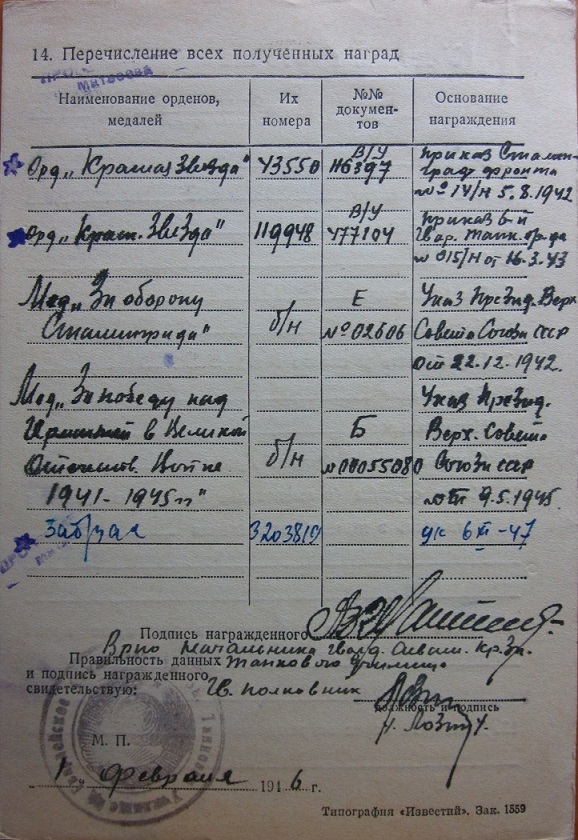 14. Перечисление всех полученных наград
Матвеева
Наименование орденов, медалей
Их номера
№№ докумен-тов
Основание награждения
Орд. „Красная Звезда" 43550 В/У 116397 Приказ Сталин-
град. фронта
№ 14/н 5.8.1942
Орд. „Красн. Звезда" 119948 В/У 477104 приказ 6-й
Гвар. Танк. бр-да
№ 015/н от 16.3.43
Мед. „За оборону Е Указ Презид. Верх.
Сталинграда" б/н №02606 Совета Союза ССР
от 22.12.1942.
Мед. „За победу над Указ Презид.
Германией в Великой Б Верх. Совета
Отечеств. Войне б/н №0055080 Союза ССР
1941-1945 гг" от 9.5.1945
3203819 ук 6 XI-47
Подпись награжденного
Врио Начальника гвард.
Правильность данных Танкового училища
и подписи награжденного
свидетельствую: Гв. полковник
должность и подпись
М. П.
1 февраля 1946 г.
Типография «Известий». Зак. 1559